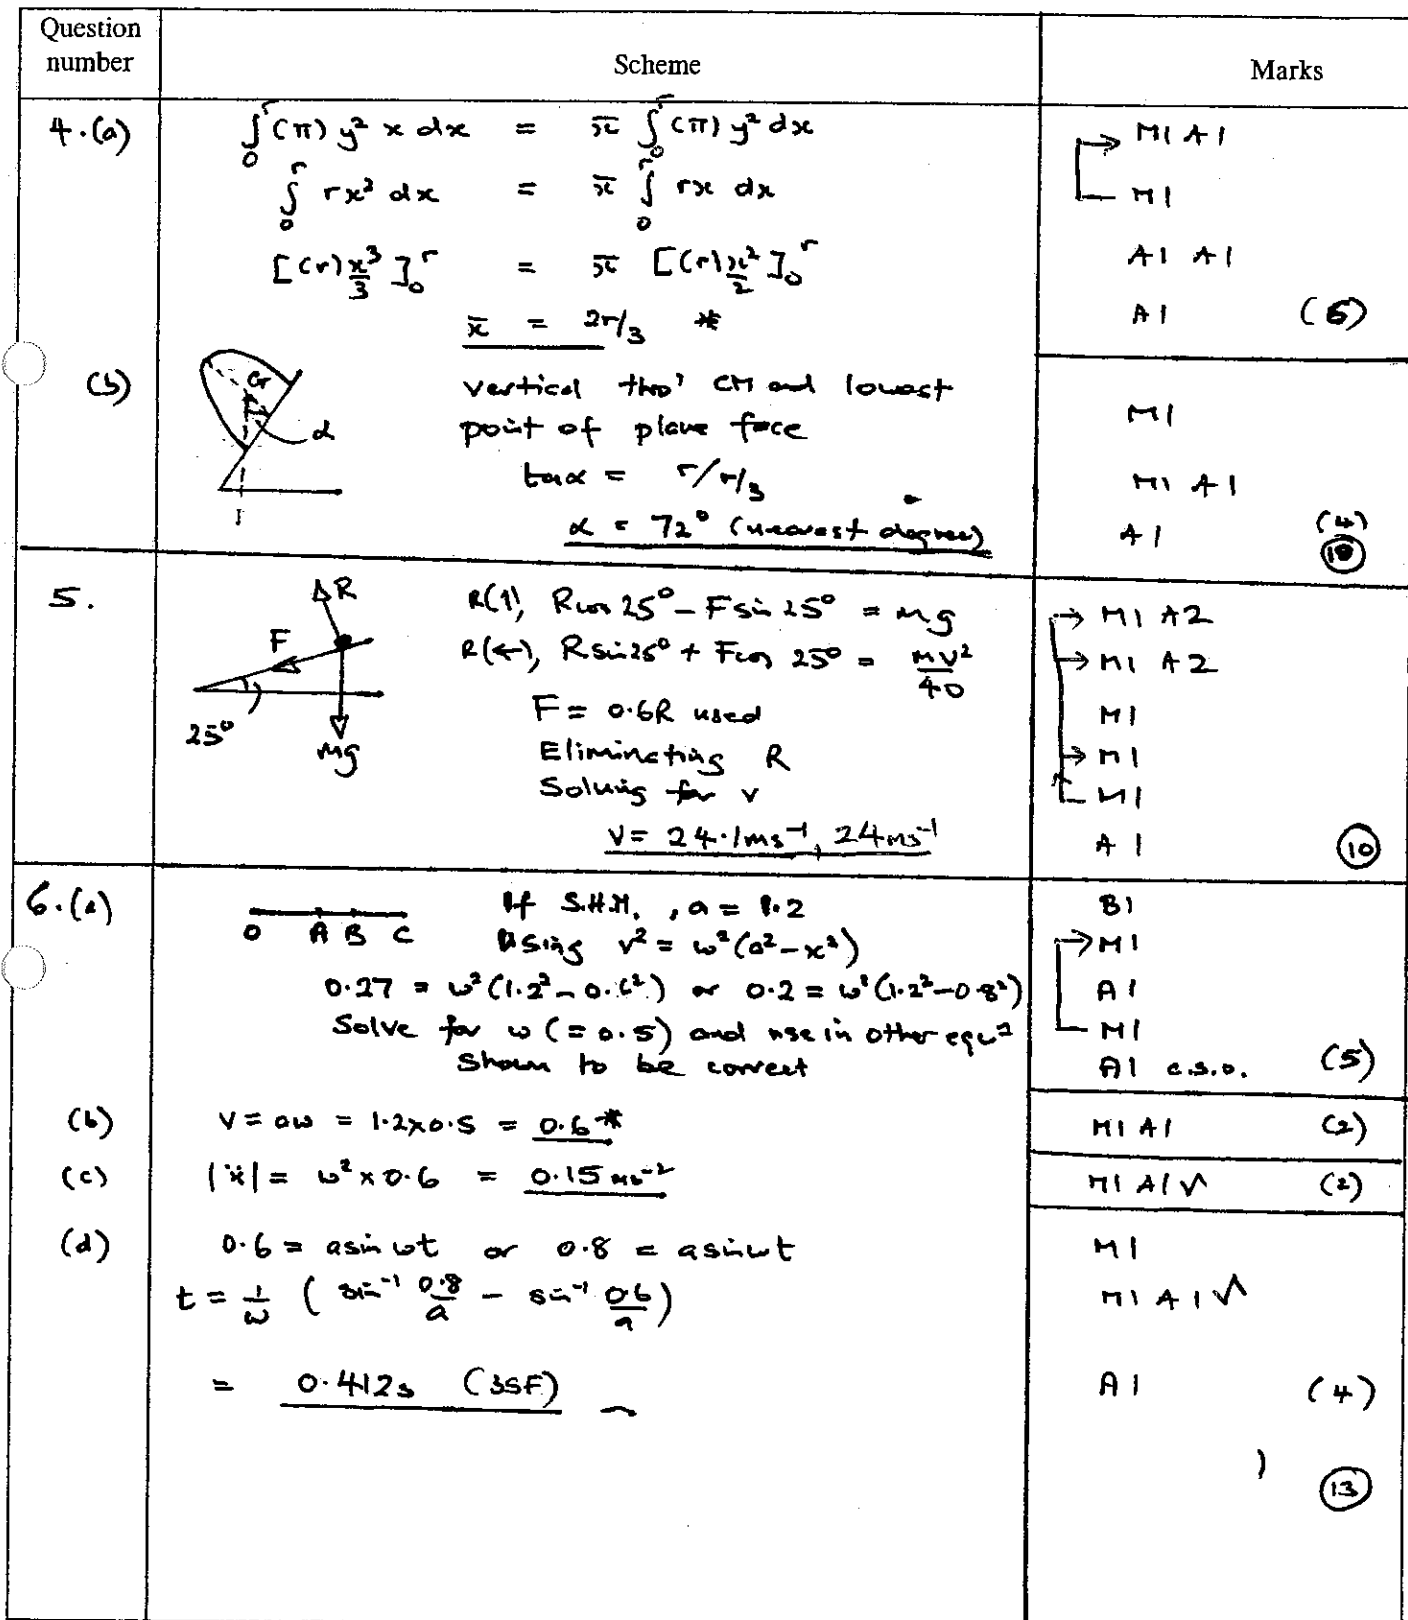 Question number | Scheme | Marks
4.(a) ∫₀ʳ (π) y² x dx = x̄ ∫₀ʳ (π) y² dx → M1 A1
∫₀ʳ rx² dx = x̄ ∫₀ʳ rx dx M1
[(r) x³/3]₀ʳ = x̄ [(r) x²/2]₀ʳ A1 A1
x̄ = 2r/3 * A1 (6)
(b) G α vertical thro' CM and lowest
point of plane face M1
tan α = r/r/3 M1 A1
α = 72° (nearest degree) A1 (4)
(10)
5. R F 25° mg
R(↑), R cos 25° - F sin 25° = mg → M1 A2
R(←), R sin 25° + F cos 25° = mv²/40 → M1 A2
F = 0.6R used M1
Eliminating R → M1
Solving for v M1
v = 24.1 ms⁻¹, 24 ms⁻¹ A1 (10)
6.(a) O A B C If S.H.M., a = 1.2 B1
Using v² = ω²(a² - x²) → M1
0.27 = ω²(1.2² - 0.6²) or 0.2 = ω²(1.2² - 0.8²) A1
Solve for ω (= 0.5) and use in other equⁿ M1
Shown to be correct A1 c.s.o. (5)
(b) v = aω = 1.2 x 0.5 = 0.6 * M1 A1 (2)
(c) |ẍ| = ω² x 0.6 = 0.15 ms⁻² M1 A1√ (2)
(d) 0.6 = a sin ωt or 0.8 = a sin ωt M1
t = 1/ω ( sin⁻¹ 0.8/a - sin⁻¹ 0.6/a ) M1 A1√
= 0.412s (3SF) A1 (4)
(13)